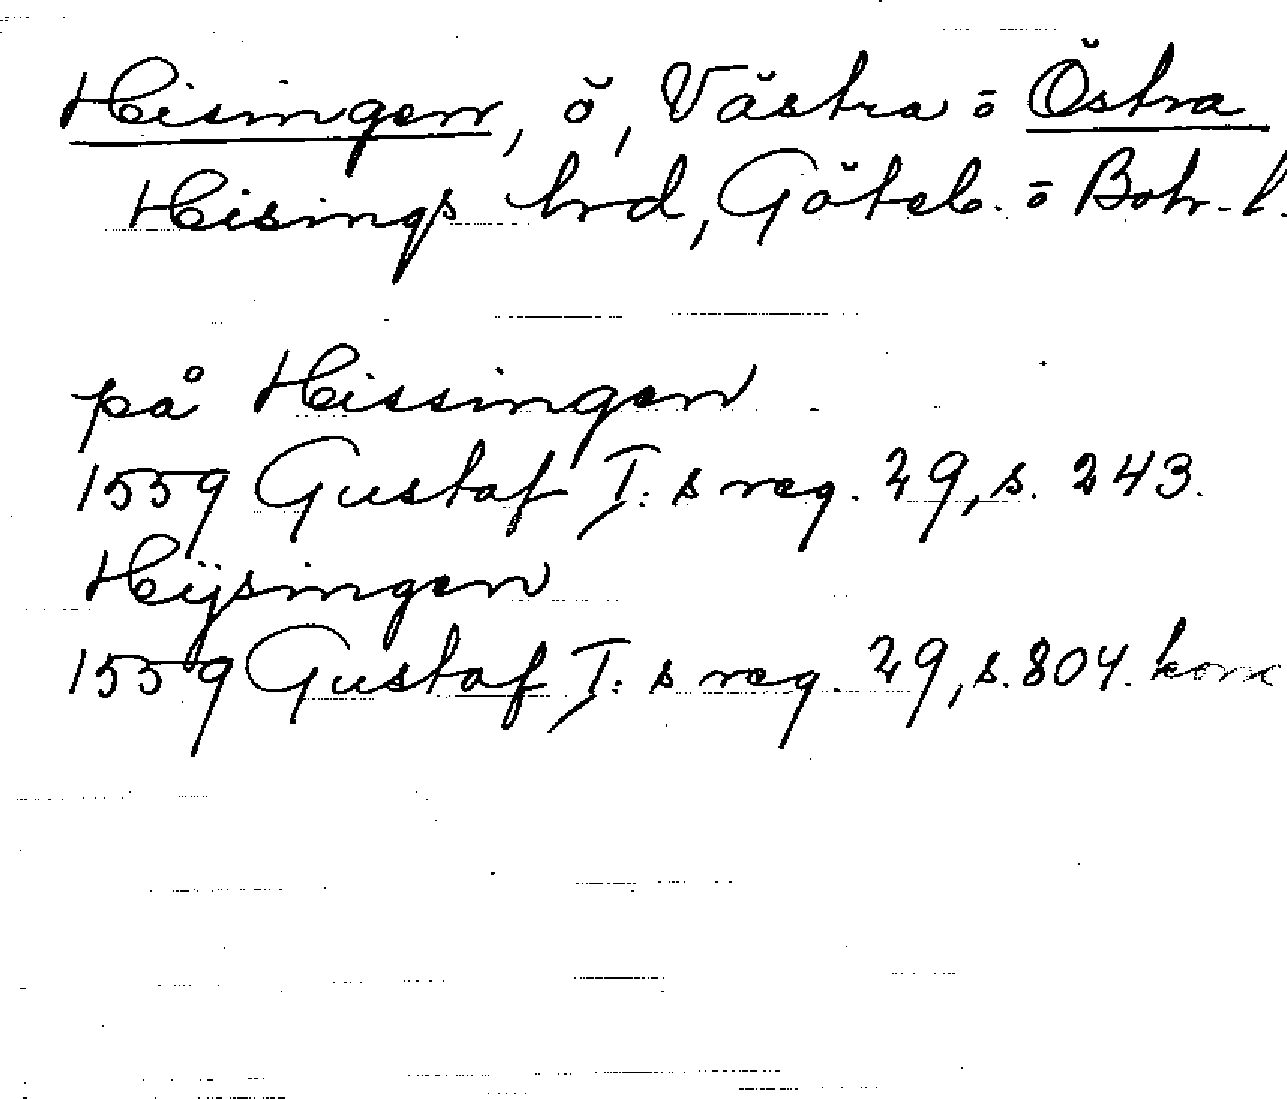 Hisingen, ö, Västra o Östra
Hisings hrd, Göteb. o Boh. l.
på Hissingen
1559 Gustaf I:s reg. 29, s. 243.
Hijsingen
1559 Gustaf I:s reg. 29, s. 804.